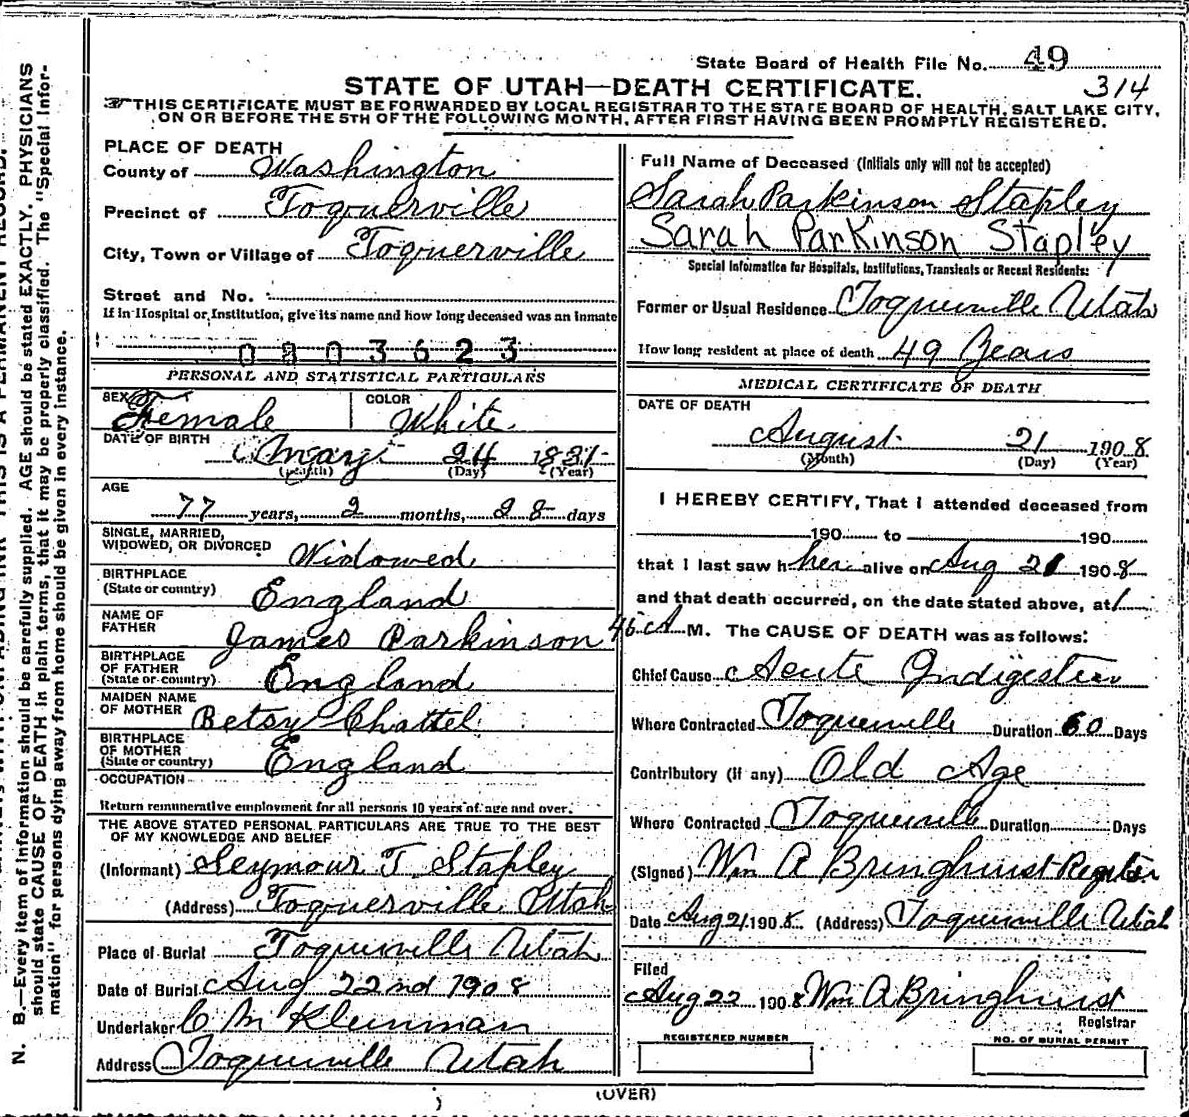 State Board of Health File No. 49
314
STATE OF UTAH—DEATH CERTIFICATE.
THIS CERTIFICATE MUST BE FORWARDED BY LOCAL REGISTRAR TO THE STATE BOARD OF HEALTH, SALT LAKE CITY,
ON OR BEFORE THE 5TH OF THE FOLLOWING MONTH, AFTER FIRST HAVING BEEN PROMPTLY REGISTERED.
PLACE OF DEATH
County of Washington
Precinct of Toquerville
City, Town or Village of Toquerville
Street and No.
If in Hospital or Institution, give its name and how long deceased was an inmate
0803623
PERSONAL AND STATISTICAL PARTICULARS
SEX Female COLOR White
DATE OF BIRTH May 24 1831
(Month) (Day) (Year)
AGE
77 years, 2 months, 28 days
SINGLE, MARRIED,
WIDOWED, OR DIVORCED Widowed
BIRTHPLACE
(State or country) England
NAME OF
FATHER James Parkinson
BIRTHPLACE
OF FATHER
(State or country) England
MAIDEN NAME
OF MOTHER Betsy Chattel
BIRTHPLACE
OF MOTHER
(State or country) England
OCCUPATION
Return remunerative employment for all persons 10 years of age and over.
THE ABOVE STATED PERSONAL PARTICULARS ARE TRUE TO THE BEST
OF MY KNOWLEDGE AND BELIEF
(Informant) Seymour T. Stapley
(Address) Toquerville Utah
Place of Burial Toquerville Utah
Date of Burial Aug 22nd 1908
Undertaker C M Kleinman
Address Toquerville Utah
Full Name of Deceased (Initials only will not be accepted)
Sarah Parkinson Stapley
Sarah Parkinson Stapley
Special Information for Hospitals, Institutions, Transients or Recent Residents:
Former or Usual Residence Toquerville Utah
How long resident at place of death 49 Years
MEDICAL CERTIFICATE OF DEATH
DATE OF DEATH
August 21 1908
(Month) (Day) (Year)
I HEREBY CERTIFY, That I attended deceased from
190 to 190
that I last saw her alive on Aug 21 1908
and that death occurred, on the date stated above, at 1
45 A M. The CAUSE OF DEATH was as follows:
Chief Cause Acute Indigestion
Where Contracted Toquerville Duration 60 Days
Contributory (if any) Old Age
Where Contracted Toquerville Duration Days
(Signed) Wm A Bringhurst Register
Date Aug 21 1908. (Address) Toquerville Utah
Filed
Aug 22 1908 Wm A Bringhurst
Registrar
REGISTERED NUMBER
NO. OF BURIAL PERMIT
(OVER)
N. B.—Every item of information should be carefully supplied. AGE should be stated EXACTLY. PHYSICIANS
should state CAUSE OF DEATH in plain terms, that it may be properly classified. The "Special Infor-
mation" for persons dying away from home should be given in every instance.